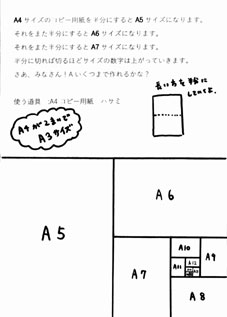 A4サイズのコピー用紙を半分にするとA5サイズになります。
それをまた半分にするとA6サイズになります。
それをまた半分にするとA7サイズになります。
半分に切れば切るほどサイズの数字は上がっていきます。
さあ、みなさん！Aいくつまで作れるかな？
使う道具　:A4コピー用紙　ハサミ
長い方を半分に
してくよ。
A4が2まいで
A3サイズ
A5
A6
A7
A8
A9
A10
A11
A12